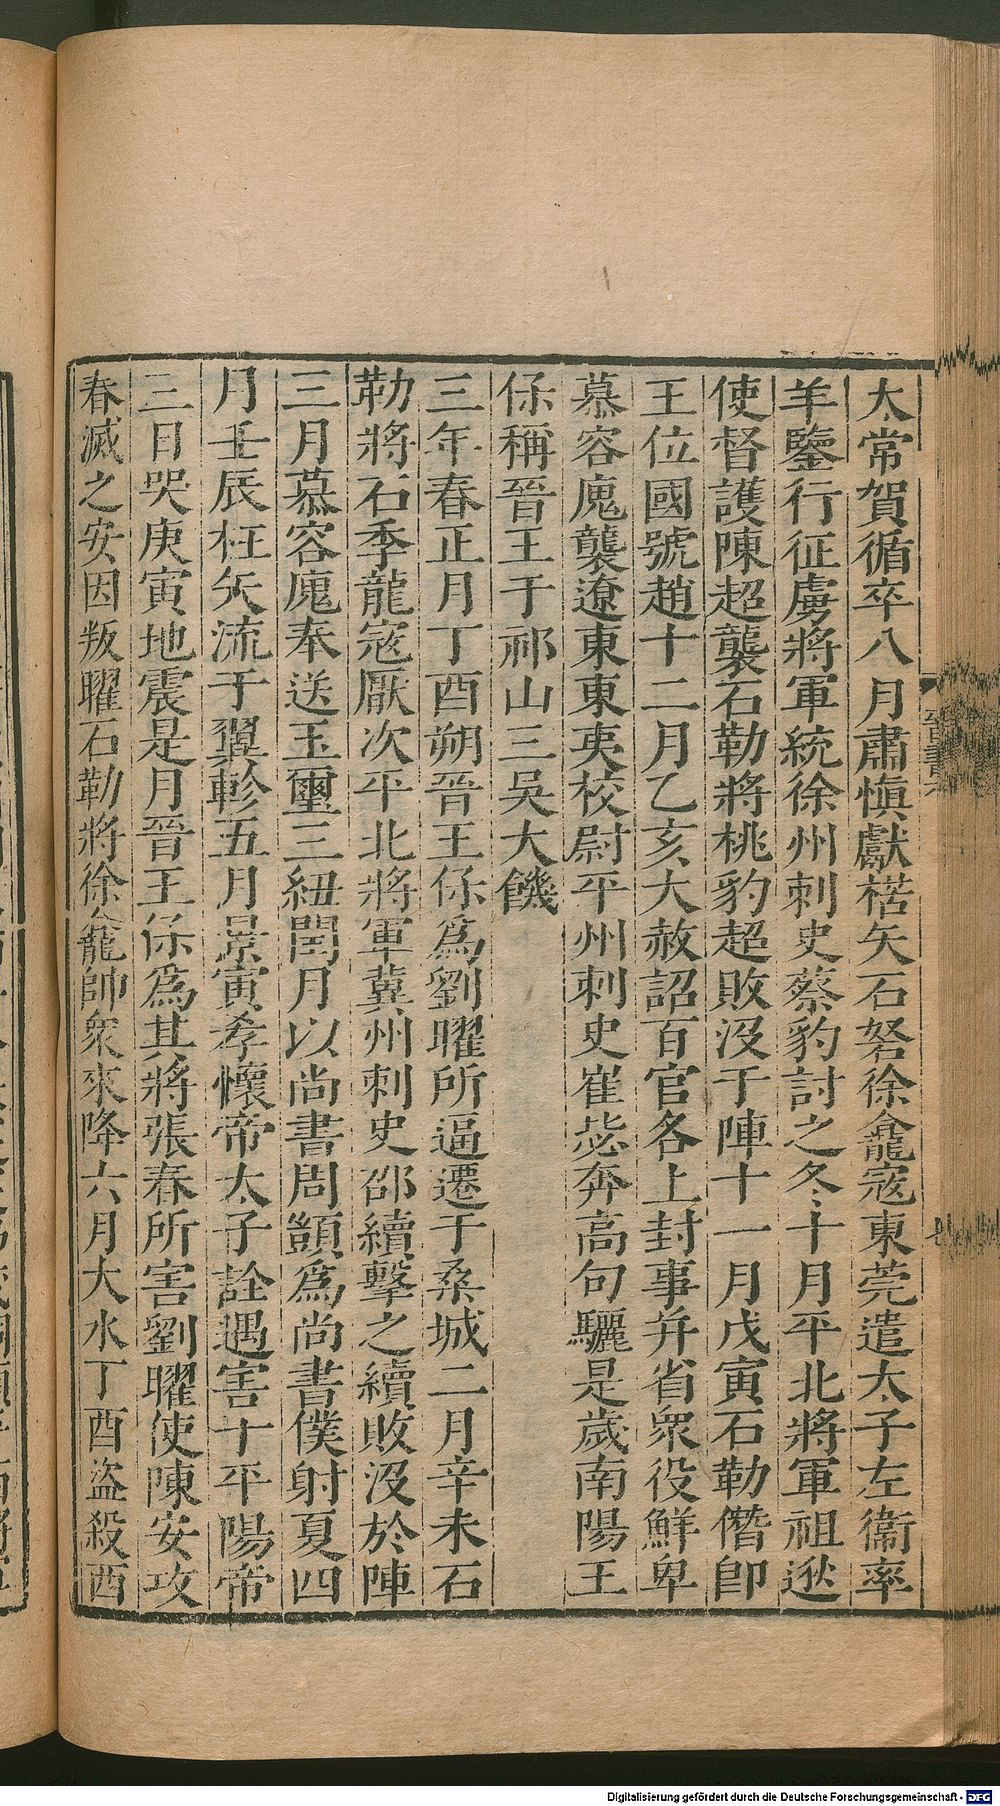 太常賀循卒八月肅慎獻楛矢石砮徐龕寇東莞遣太子左衞率
羊鑒行征虜將軍統徐州刺史蔡豹討之冬十月平北將軍祖逖
使督護陳超襲石勒將桃豹超敗沒于陣十一月戊寅石勒僭卽
王位國號趙十二月乙亥大赦詔百官各上封事并省衆役鮮卑
慕容廆襲遼東東夷校尉平州刺史崔毖奔高句驪是歲南陽王
保稱晉王于祁山三吳大饑
三年春正月丁酉朔晉王保爲劉曜所逼遷于桑城二月辛未石
勒將石季龍寇厭次平北將軍冀州刺史邵續擊之續敗沒於陣
三月慕容廆奉送玉璽三紐閏月以尚書周顗爲尚書僕射夏四
月壬辰枉矢流于翼軫五月景寅孝懷帝太子詮遇害于平陽帝
三日哭庚寅地震是月晉王保爲其將張春所害劉曜使陳安攻
春滅之安因叛曜石勒將徐龕帥衆來降六月大水丁酉盜殺西
Digitalisierung gefördert durch die Deutsche Forschungsgemeinschaft - DFG